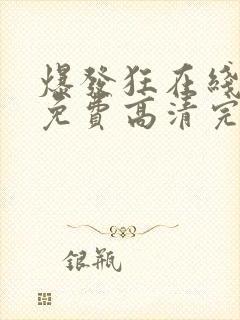 爆發狂在綫
免費高清完
銀瓶